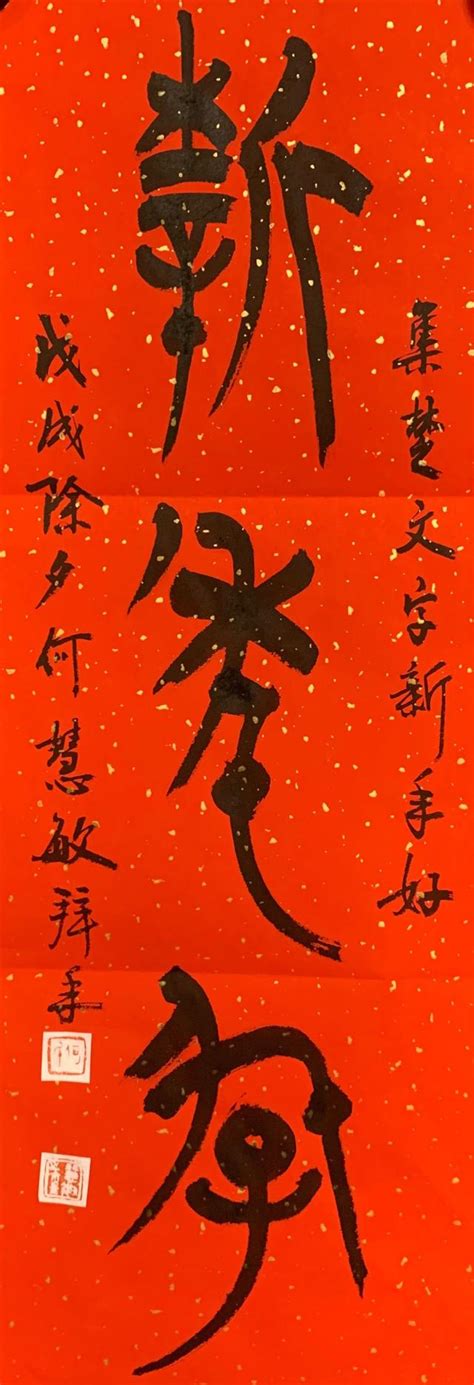 集楚文字新年好
新年好
戊戌除夕何慧敏拜年